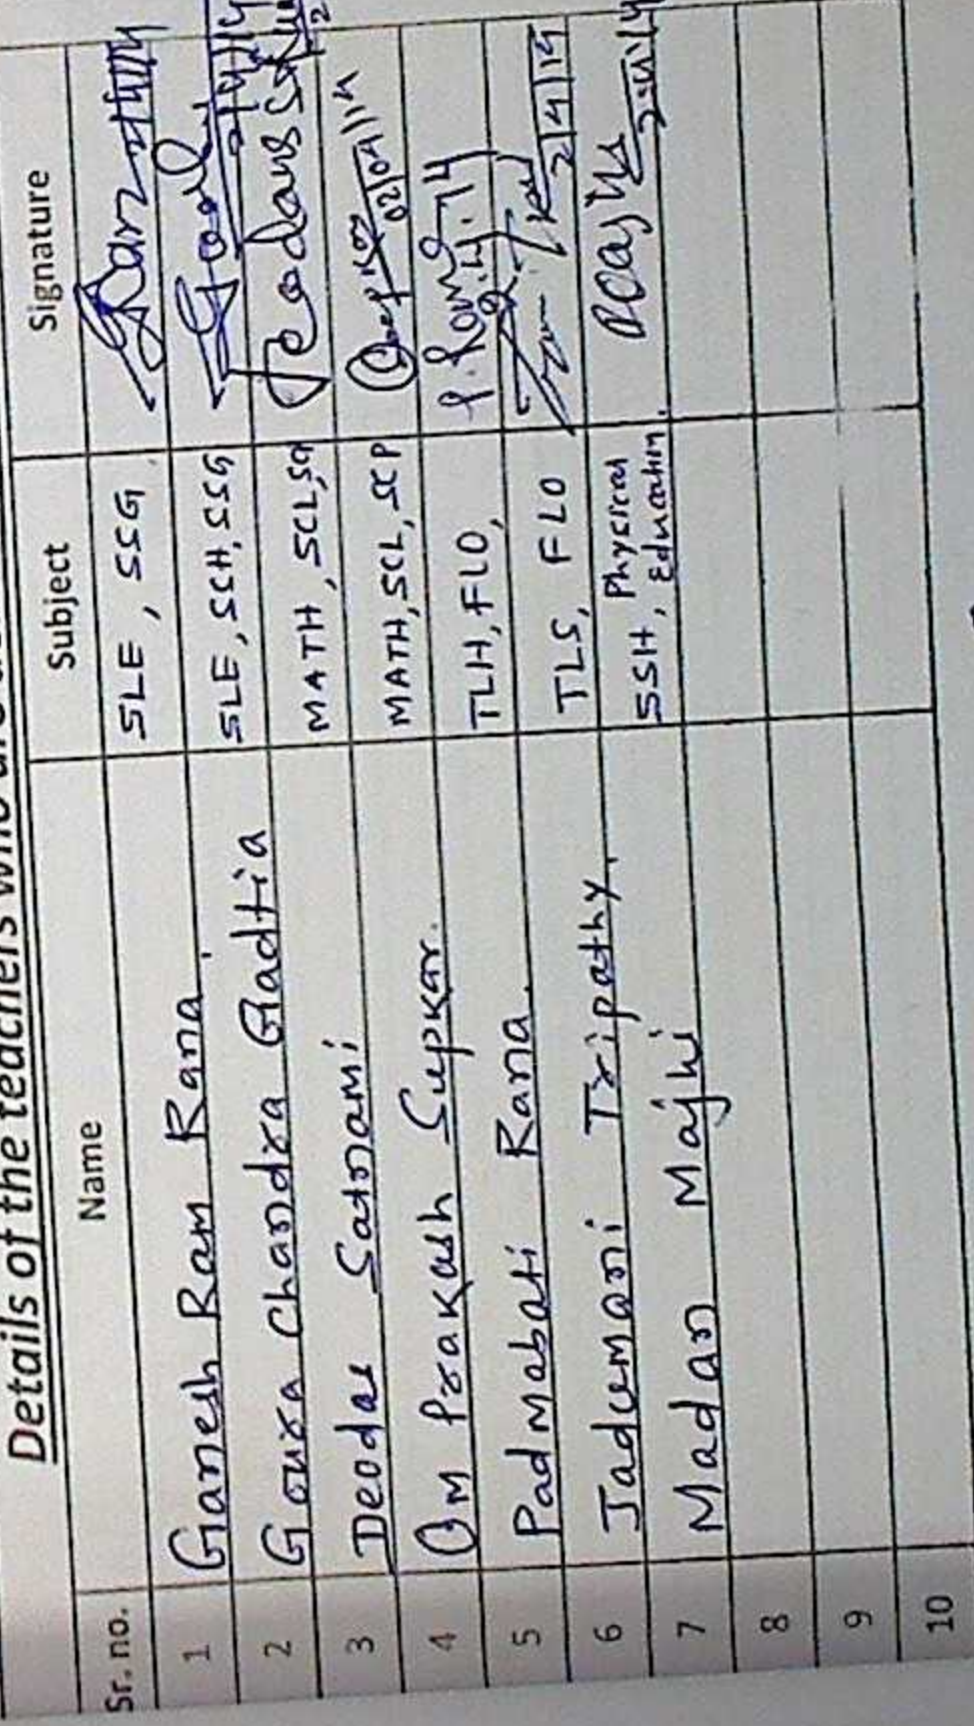 Details of the teachers who
Sr. no. Name Subject Signature
1 Ganesh Ram Rana. SLE, SSG.
2 Goura Chandra Gadtia SLE, SCH, SSG
3 Deodas Satnami MATH, SCL,
4 Om Prakash Supkar. MATH, SCL, SCP 02/04/14
5 Padmabati Rana. TLH, FLO, P. Rana 2.4.14
6 Jadumani Tripathy. TLS, FLO 2/4/14
7 Madan Majhi SSH, Physical Education.
8
9
10